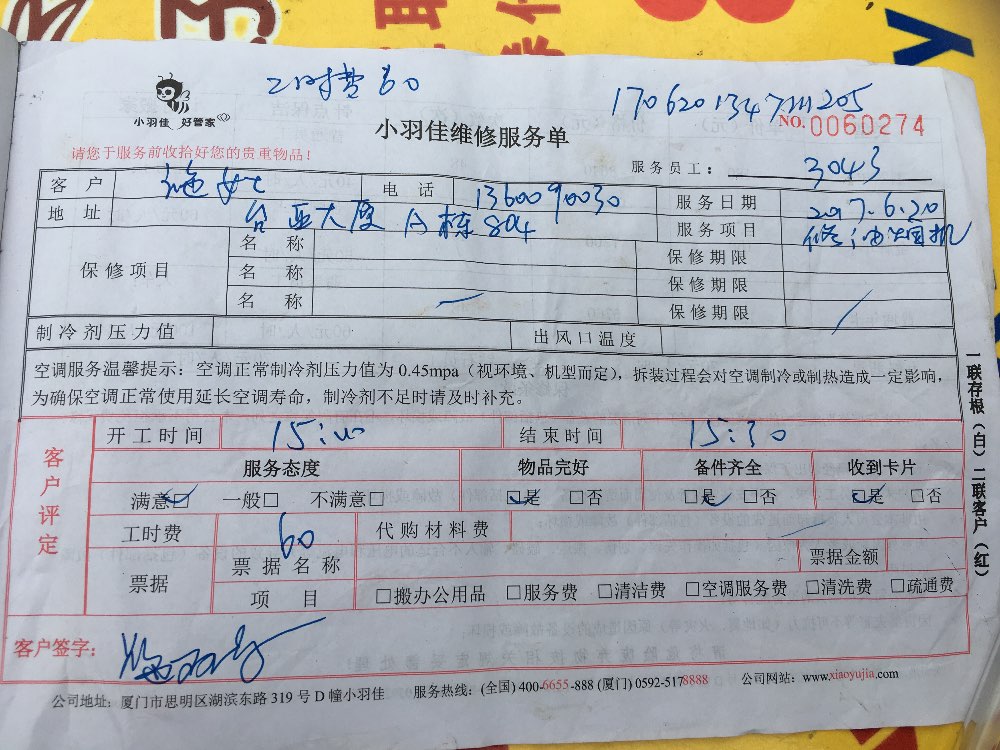 工时费60
17062013471111205
小羽佳 好管家
小羽佳维修服务单
NO.0060274
请您于服务前收拾好您的贵重物品!
服务员工: 3043
客户 施女士 电话 1360090030 服务日期 2017.6.20
地址 台亚大厦A栋804 服务项目 修油烟机
保修项目 名称 保修期限
名称 保修期限
名称 保修期限
制冷剂压力值 出风口温度
空调服务温馨提示:空调正常制冷剂压力值为 0.45mpa(视环境、机型而定),拆装过程会对空调制冷或制热造成一定影响,
为确保空调正常使用延长空调寿命,制冷剂不足时请及时补充。
一联存根(白)二联客户(红)
客户评定
开工时间 15:00 结束时间 15:30
服务态度 物品完好 备件齐全 收到卡片
满意☑ 一般□ 不满意□ ☑是 □否 ☑是 □否 ☑是 □否
工时费 60 代购材料费
票据 票据名称 票据金额
项目 □搬办公用品 □服务费 □清洁费 □空调服务费 □清洗费 □疏通费
客户签字:
公司地址:厦门市思明区湖滨东路 319 号 D 幢小羽佳 服务热线:(全国) 400-6655-888 (厦门) 0592-5178888 公司网站:www.xiaoyujia.com